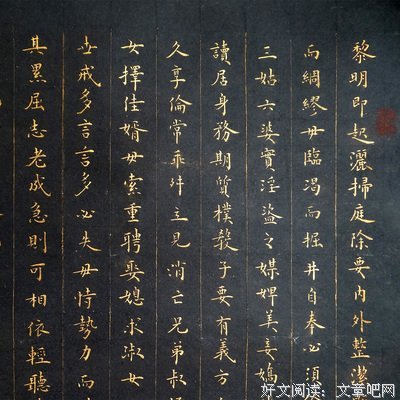 黎明即起灑掃庭除要内外整潔
而綢繆毋臨渴而掘井自奉必須
三姑六婆實淫盜之媒婢美妾嬌
讀居身務期質樸教子要有義方
久享倫常乖舛立見消亡兄弟叔
女擇佳婿毋索重聘娶媳求淑女
世戒多言言多必失毋恃勢力而
其累屈志老成急則可相依輕聽
好文阅读：文章吧网